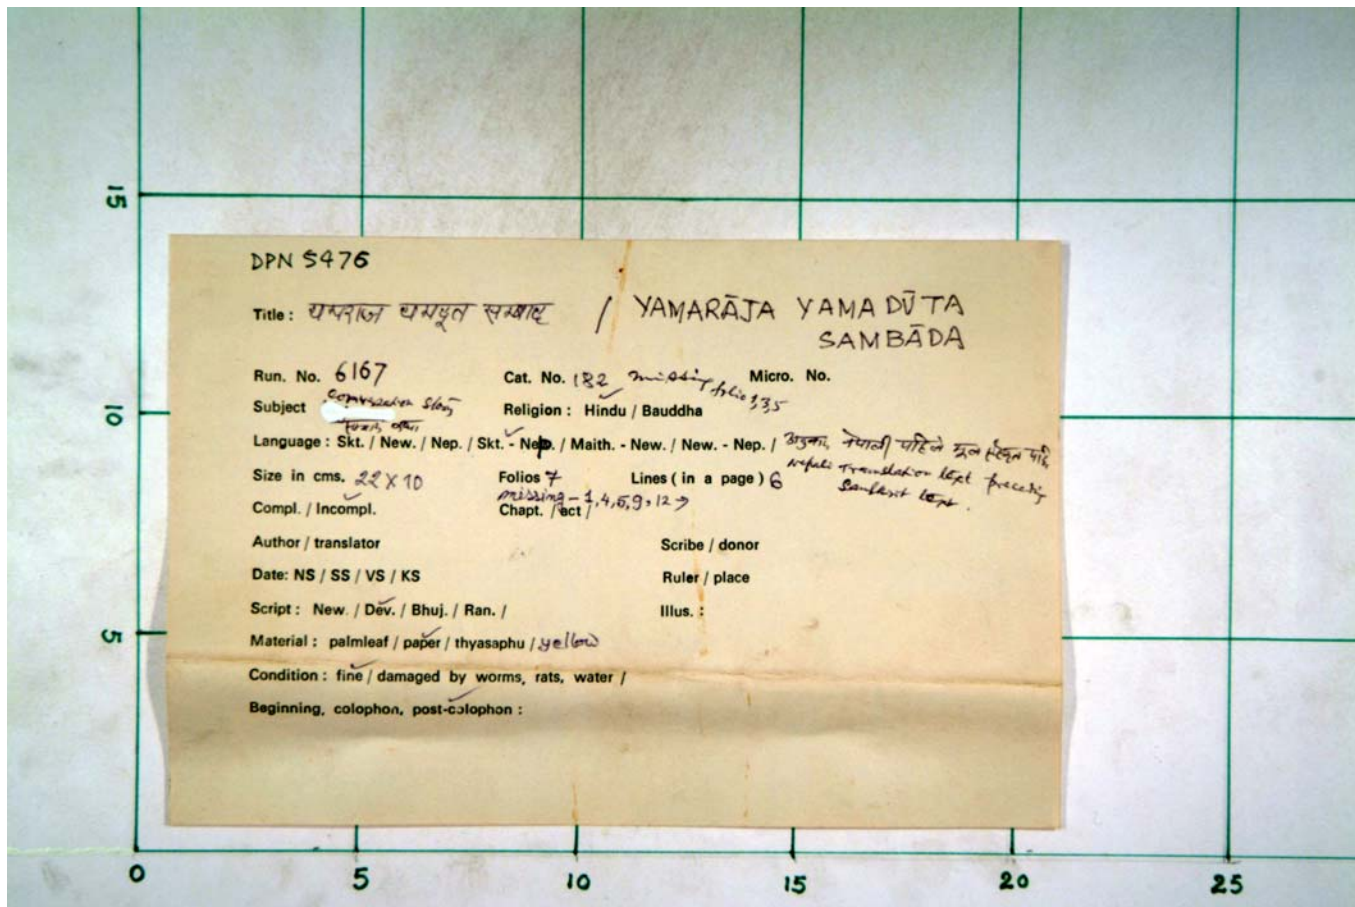 15
10
5
DPN 5476
Title : यमराज यमदूत सम्बाद / YAMARĀJA YAMA DŪTA
SAMBĀDA
Run. No. 6167 Cat. No. 182 missing folio 1,3,5 Micro. No.
Subject Conversation Story Religion : Hindu / Bauddha
Language : Skt. / New. / Nep. / Skt. - Nep. / Maith. - New. / New. - Nep. / नेपाली पहिले मूल संस्कृत पछि
Nepali Translation text preceding
Sanskrit text.
Size in cms. 22 X 10 Folios 7 Lines ( in a page ) 6
missing - 1, 4, 5, 9, 12 →
Compl. / Incompl. Chapt. / act /
Author / translator Scribe / donor
Date: NS / SS / VS / KS Ruler / place
Script : New. / Dev. / Bhuj. / Ran. / Illus. :
Material : palmleaf / paper / thyasaphu / yellow
Condition : fine / damaged by worms, rats, water /
Beginning, colophon, post-colophon :
0 5 10 15 20 25